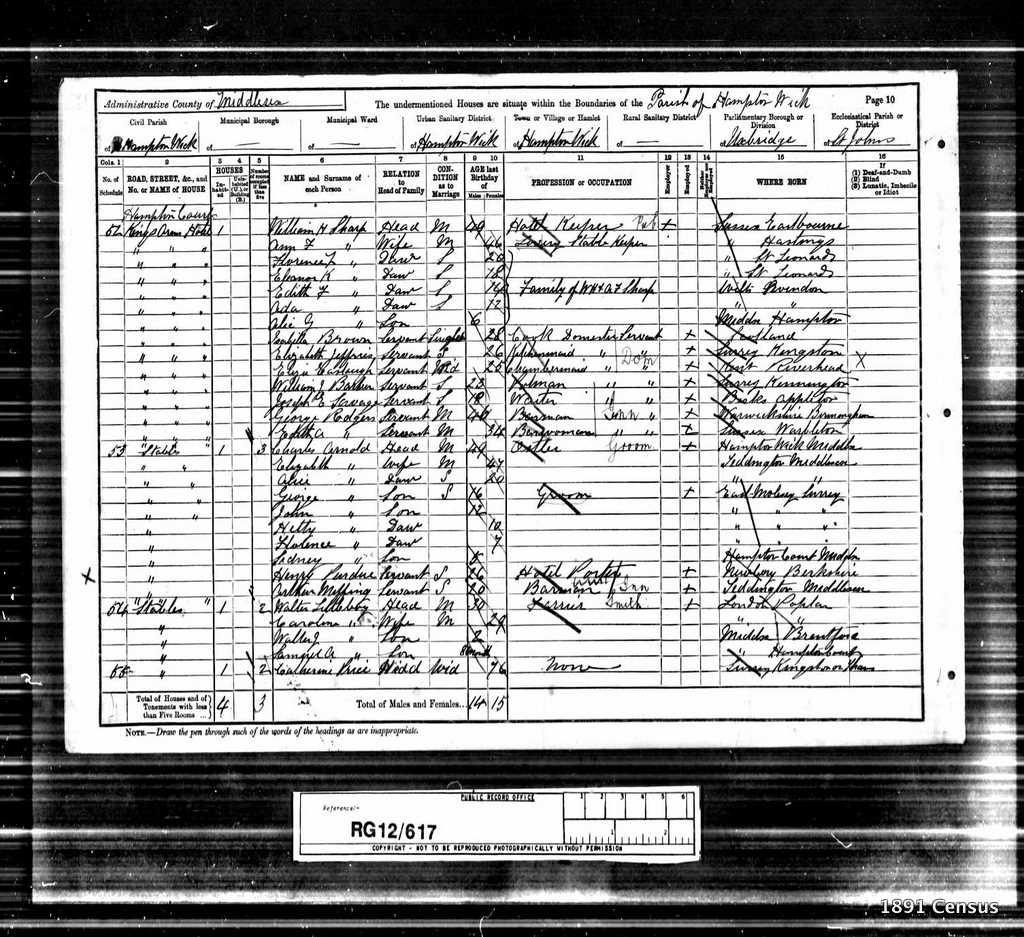 Administrative County of Middlesex
The undermentioned Houses are situate within the Boundaries of the Parish of Hampton Wick
Page 10
Civil Parish
of Hampton Wick
Municipal Borough
of —
Municipal Ward
of —
Urban Sanitary District
of Hampton Wick
Town or Village or Hamlet
of Hampton Wick
Rural Sanitary District
of —
Parliamentary Borough or Division
of Uxbridge
Ecclesiastical Parish or District
of St Johns
Cols. 1 2 3 4 5 6 7 8 9 10 11 12 13 14 15 16
No. of Schedule
ROAD, STREET, &c., and No. or NAME of HOUSE
HOUSES
Inhabited
Uninhabited (U.), or Building (B.)
Number of rooms occupied if less than five
NAME and Surname of each Person
RELATION to Head of Family
CONDITION as to Marriage
AGE last Birthday of
Males
Females
PROFESSION or OCCUPATION
Employer
Employed
Neither
WHERE BORN
If (1) Deaf-and-Dumb (2) Blind (3) Lunatic, Imbecile or Idiot
Hampton Court
52 Kings Arms Hotel 1 William H Sharp Head M 49 Hotel Keeper + Sussex Eastbourne
" " Ann F " Wife M 46 Livery Stable Keeper " Hastings
" " Florence F " Daur S 20 " St Leonards
" " Eleanor K " Daur S 18 " St Leonards
" " Edith F " Daur S 14 Family of WH & AF Sharp Wilts Swindon
" " Ada " Daur S 12 " "
" " " Son 6 Middx Hampton
" " Isabella Brown Servant Single 28 Cook Domestic Servant + Scotland
" " Elizabeth Jeffries Servant S 26 Kitchenmaid " Dom + Surrey Kingston
" " Servant Wd 25 Chambermaid " " + Kent Riverhead X
" " William J Barker Servant S 23 Potman " " + Surrey Kennington
" " Joseph E Savage Servant S 18 Waiter " " + Berks Appleton
" " George Rodgers Servant M 40 Barman Inn " + Warwickshire Birmingham
" " Edith A " Servant M 34 Barwoman " " + Sussex Warbleton
53 "Stables 1 3 Charles Arnold Head M 49 Ostler Groom + Hampton Wick Middlsx
" " Elizabeth " Wife M 47 Teddington Middlesex
" " Alice " Daur S 20 " "
" " George " Son S 16 Groom + East Molesey Surrey
" " John " Son 12 " " "
" Hetty " Daur 10 " " "
" Florence " Daur 7 " " "
" Sidney " Son 5 Hampton Court Middx
" Henry Purdue Servant S 26 Hotel Porter + Newbury Berkshire
" Arthur Servant S 20 Barman Inn + Teddington Middlesex
54 "Stables " 1 2 Walter Head M 30 Farrier Smith + London Poplar
" Caroline " Wife M 29 " "
" Walter J " Son 2 Middlsx Brentford
" Samuel A " Son 8 month " Hampton Court
55 " 1 2 Catherine Price Head Wid 76 None Surrey Kingston on Thames
Total of Houses and of Tenements with less than Five Rooms ... 4 3
Total of Males and Females... 14 15
NOTE.—Draw the pen through such of the words of the headings as are inappropriate.
PUBLIC RECORD OFFICE
Reference:-
RG12/617
1 2 3 4 5 6
1 2
COPYRIGHT - NOT TO BE REPRODUCED PHOTOGRAPHICALLY WITHOUT PERMISSION
1891 Census